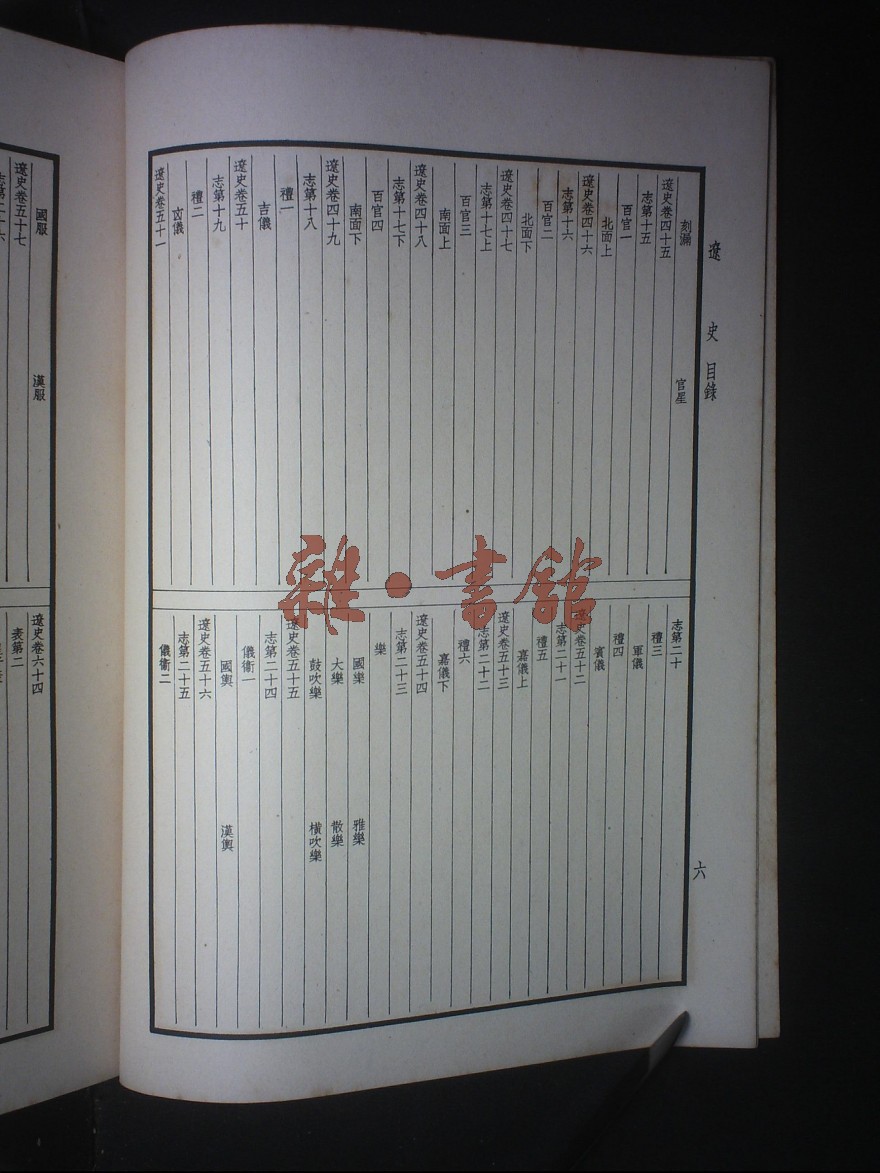 遼史 目錄
六
刻漏 官星
遼史卷四十五
志第十五
百官一
北面上
遼史卷四十六
志第十六
百官二
北面下
遼史卷四十七
志第十七上
百官三
南面上
遼史卷四十八
志第十七下
百官四
南面下
遼史卷四十九
志第十八
禮一
吉儀
遼史卷五十
志第十九
禮二
凶儀
遼史卷五十一
志第二十
禮三
軍儀
禮四
賓儀
遼史卷五十二
志第二十一
禮五
嘉儀上
遼史卷五十三
志第二十二
禮六
嘉儀下
遼史卷五十四
志第二十三
樂
國樂 雅樂
大樂 散樂
鼓吹樂 橫吹樂
遼史卷五十五
志第二十四
儀衛一
國輿 漢輿
遼史卷五十六
志第二十五
儀衛二
國服 漢服
遼史卷五十七
志第二十六
遼史卷六十四
表第二
雜·書館